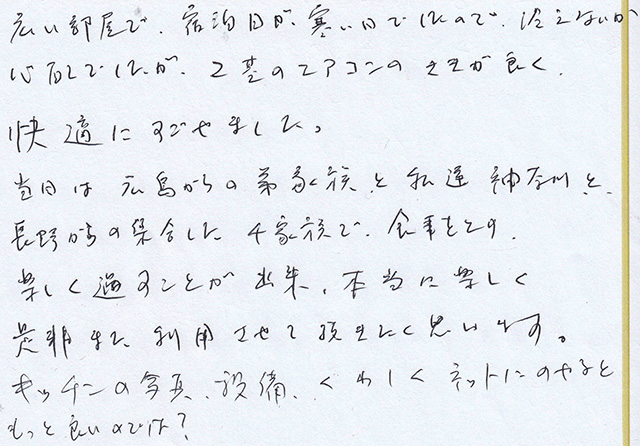 広い部屋で、宿泊日が、寒い日でしたので、冷えないか
心配でしたが、2基のエアコンのききが良く、
快適にすごせました。
当日は広島からの弟家族と私達神奈川と、
長野からの集合した4家族で、食事をとり、
楽しく過すことが出来、本当に楽しく
是非また利用させて頂きたく思います。
キッチンの写真、設備、くわしくネットにのせると
もっと良いのでは?